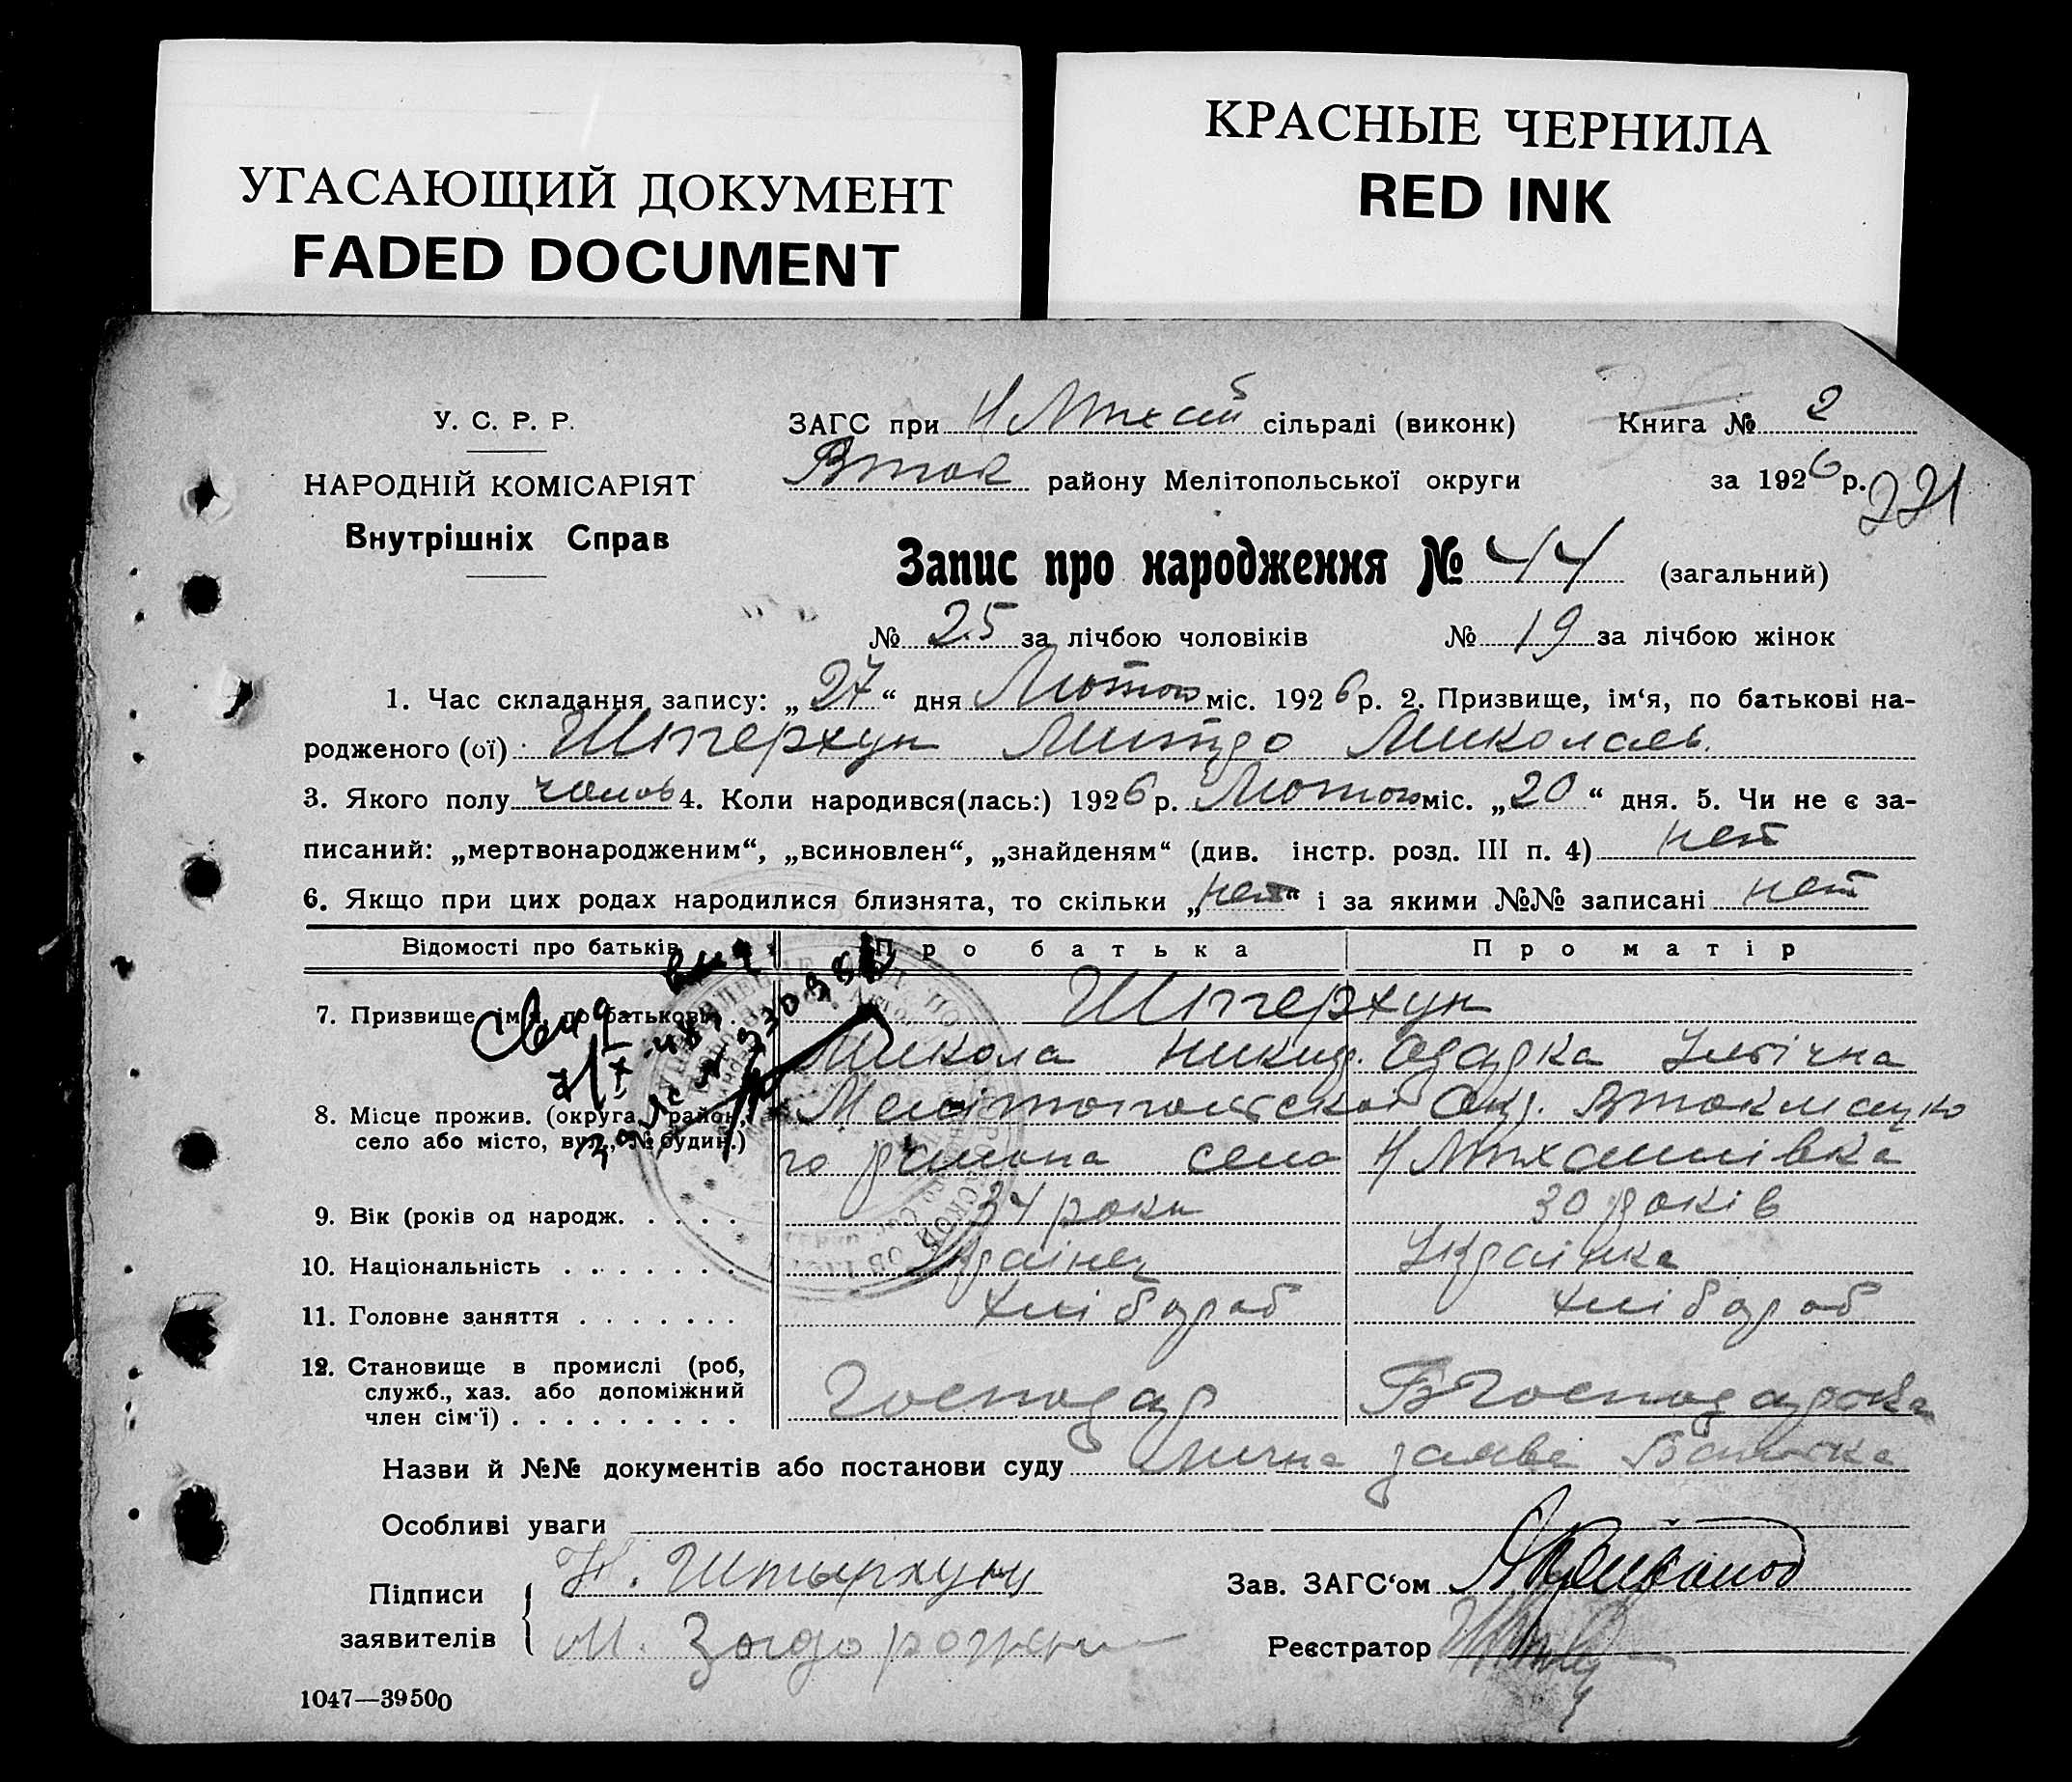 УГАСАЮЩИЙ ДОКУМЕНТ
FADED DOCUMENT
КРАСНЫЕ ЧЕРНИЛА
RED INK
У. С. Р. Р.
НАРОДНІЙ КОМІСАРІЯТ
Внутрішніх Справ
ЗАГС при Н Мих сій сільраді (виконк)
Книга № 2
Вток району Мелітопольської округи
за 1926 р.
221
Запис про народження № 44 (загальний)
№ 25 за лічбою чоловіків № 19 за лічбою жінок
1. Час складання запису: „27“ дня Лютого міс. 1926 р. 2. Призвище, ім‘я, по батькові на-
родженого (ої) Штерхун Митро Миколаєв.
3. Якого полу чолов 4. Коли народився(лась:) 1926 р. Лютого міс. „20“ дня. 5. Чи не є за-
писаний: „мертвонародженим“, „всиновлен“, „знайденям“ (див. інстр. розд. III п. 4) нет
6. Якщо при цих родах народилися близнята, то скільки „нет“ і за якими №№ записані нет
Відомості про батьків Про батька Про матір
7. Призвище, ім‘я, по батькові Штерхун
Микола Никиф. Одарка Ілічна
8. Місце прожив. (округа, район, село або місто, вул., № будин.) Мелітопольскої Окр. Втокмацко
го району село Н Михайлівка
9. Вік (років од народж. 34 роки 30 років
10. Національність Українец Українка
11. Головне заняття Хлібороб Хлібороб
12. Становище в промислі (роб, служб., хаз. або допоміжний член сім‘ї) Господар Господарка
Свид
Назви й №№ документів або постанови суду Лична заява Батька
Особливі уваги
Підписи заявителів Н. Штырхунъ
М. Загорожни
Зав. ЗАГС‘ом
Реєстратор
1047—39500